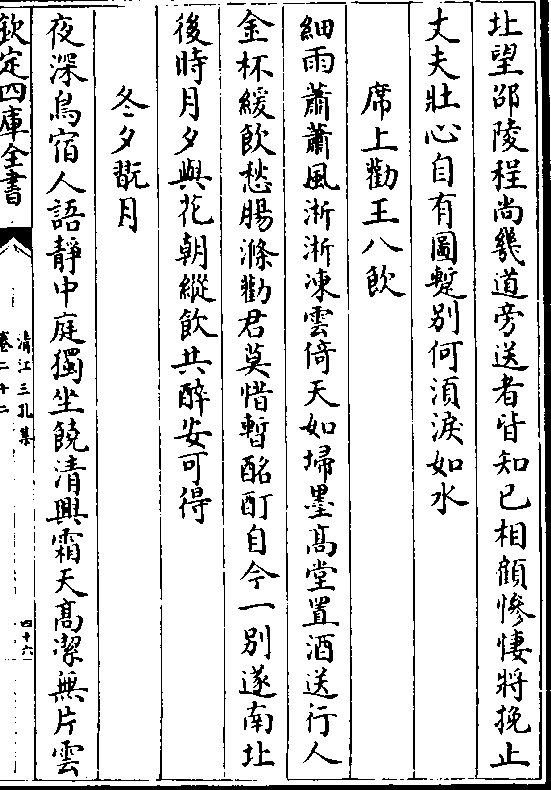 北望邵陵程尚幾道旁送者皆知己相顧慘悽將挽止
丈夫壯心自有圖蹔别何須淚如水
席上勸王八飲
細雨蕭蕭風淅淅凍雲倚天如埽墨髙堂置酒送行人
金杯緩飲愁腸滌勸君莫惜暫酩酊自今一别遂南北
後時月夕與花朝縱飲共醉安可得
冬夕翫月
夜深鳥宿人語靜中庭獨坐饒清興霜天髙潔無片雲
欽定四庫全書
清江三孔集
卷二十二
四十六